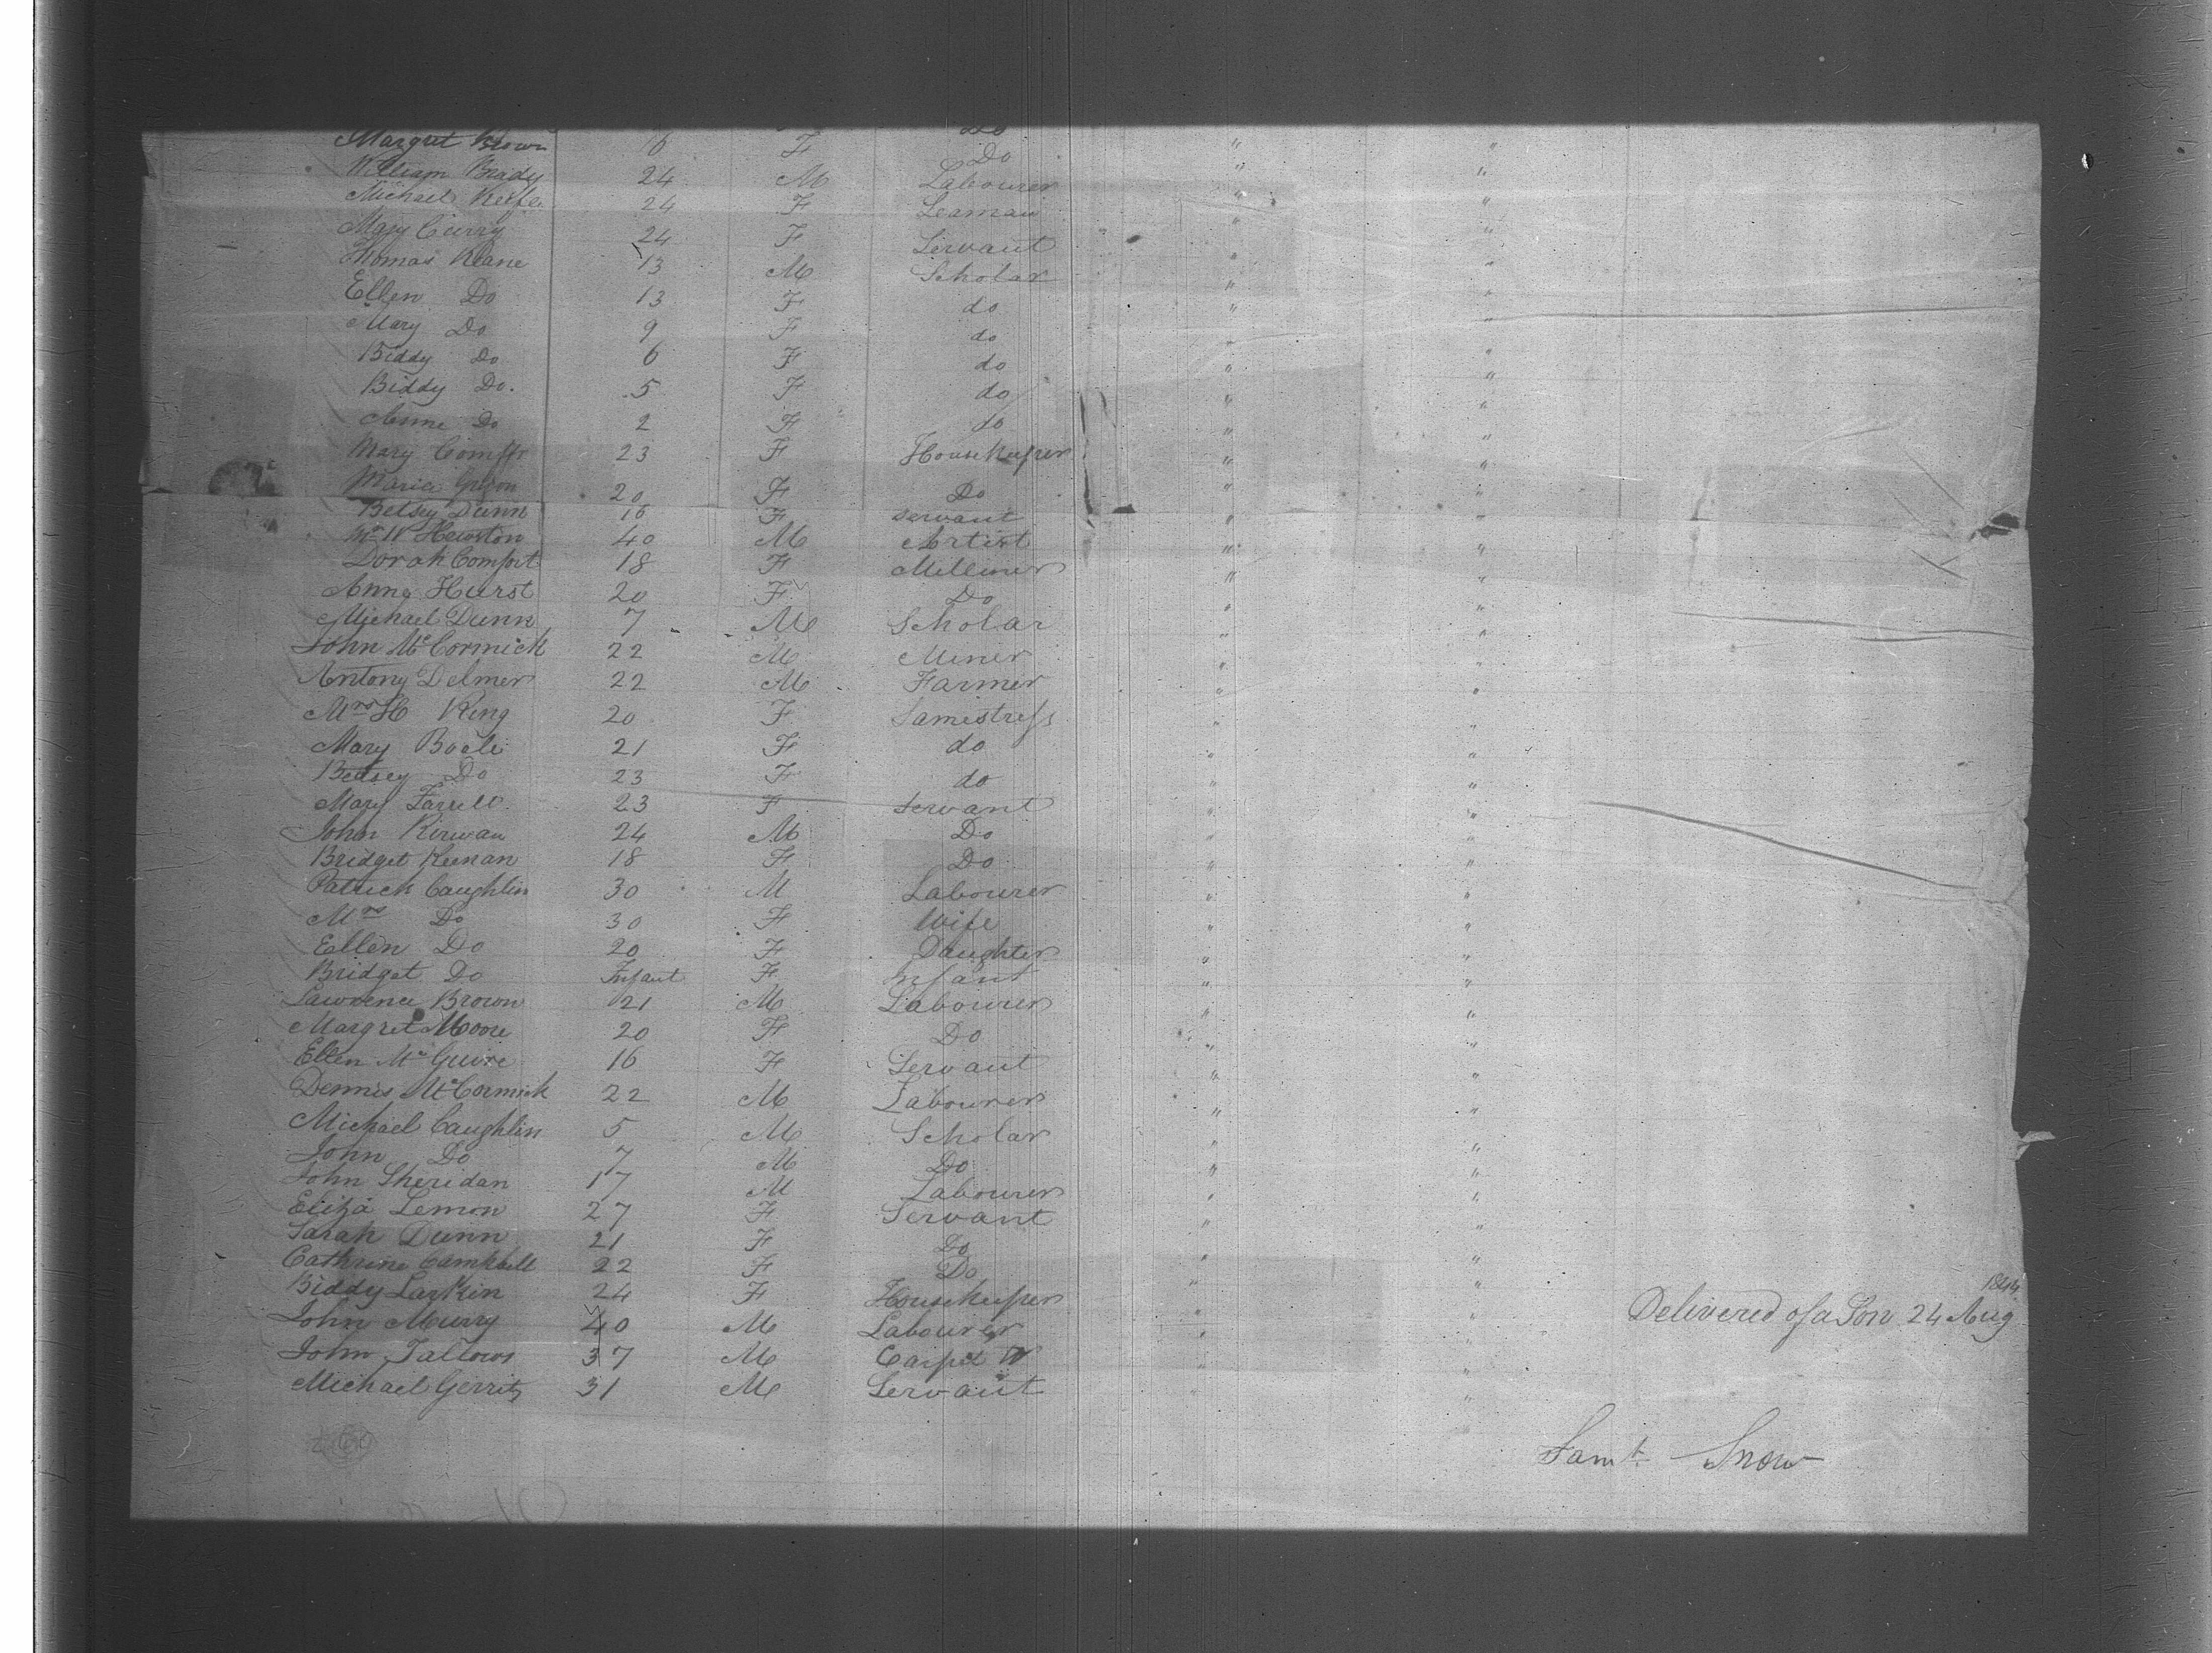 Do
Margret Brown 16 F Do " "
William Brady 24 M Labourer " "
Michael Keife 24 F Seaman " "
Mary Curry 24 F Servant " "
Thomas Keane 13 M Scholar " "
Ellen Do 13 F do " "
Mary Do 9 F do " "
Biddy Do 6 F do " "
Biddy Do. 5 F do " "
Anne Do 2 F do " "
Mary 23 F Housekeeper " "
Maria 20 F Do " "
Betsey Dunn 16 F servant " "
Mr W Hewston 40 M Artist " "
Dorah Comfort 18 F Milliner " "
Anna Hurst 20 F Do " "
Michael Dunn 7 M Scholar " "
John McCormick 22 M Miner " "
Antony Delmer 22 M Farmer " "
Mrs H King 20 F Samistress " "
Mary Boele 21 F do " "
Betsey Do 23 F do " "
Mary Farrell 23 F servant " "
John Kirwan 24 M Do " "
Bridget Keenan 18 F Do " "
Patrick Caughlin 30 M Labourer " "
Mrs Do 30 F Wife " "
Ellen Do 20 F Daughter " "
Bridget Do Infant F Infant " "
Lawrence Brown 21 M Labourer " "
Margret Moore 20 F Do " "
Ellen McGuire 16 F Servant " "
Dennis McCormick 22 M Labourer " "
Michael Caughlin 5 M Scholar " "
John Do 7 M Do " "
John Sheridan 17 M Labourer " "
Eliza Lemon 27 F Servant " "
Sarah Dunn 21 F Do " "
Cathrine Campbell 22 F Do " "
Biddy Larkin 24 F Housekeeper " " Delivered of a Son 24 Aug 1844
John Murry 40 M Labourer " "
John Tallows 37 M Carpet W " "
Michael Gerrity 31 M Servant " "
Saml. Snow